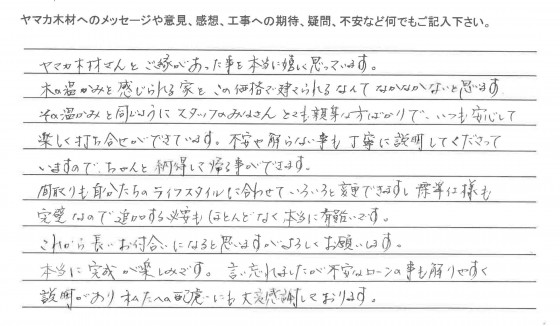 ヤマカ木材へのメッセージや意見、感想、工事への期待、疑問、不安など何でもご記入下さい。
ヤマカ木材さんとご縁があった事を本当に嬉しく思っています。
木の温かみを感じられる家をこの価格で建てられるなんてなかなかないと思います。
その温かみと同じようにスタッフのみなさんとても親華な方ばかりで、いつも安心して
楽しく打ち合せができています。不安や解らない事も丁寧に説明してくださって
いますので、ちゃんと納得して帰る事ができます。
間取りも自分たちのライフスタイルに合わせていろいろと変更できますし標準仕様も
完璧なので追加する必要もほとんどなく本当に有難いです。
これから長いお付合いになると思いますがよろしくお願いします。
本当に完成が楽しみです。言い忘れましたが不安なローンの事も解りやすく
説明があり私たちへの配慮にも大変感謝しております。